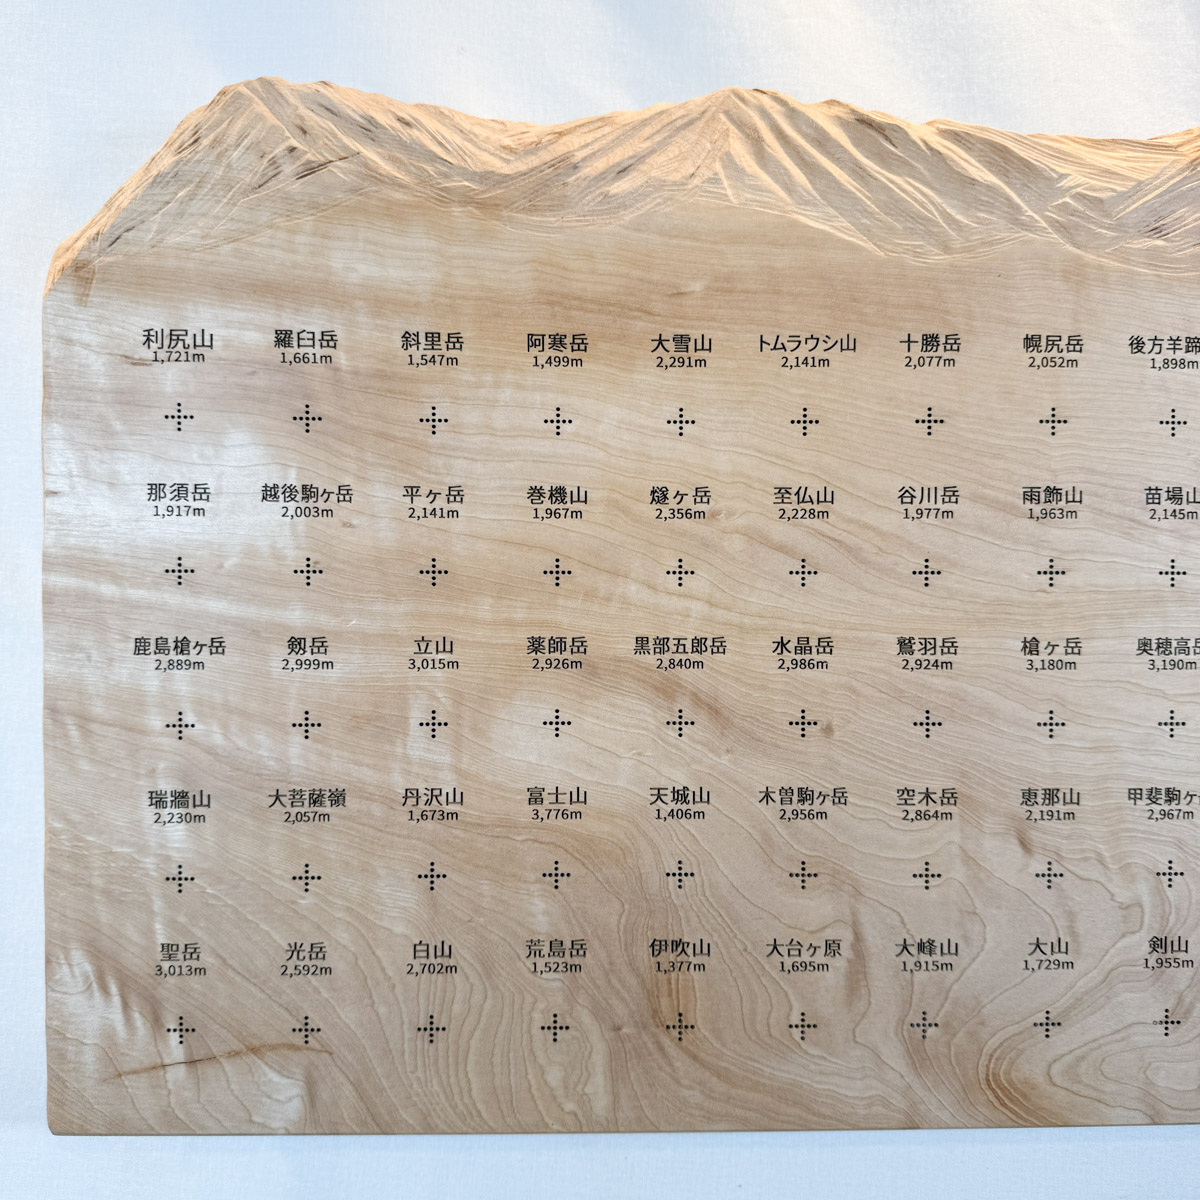 利尻山 羅臼岳 斜里岳 阿寒岳 大雪山 トムラウシ山 十勝岳 幌尻岳 後方羊蹄
1,721m 1,661m 1,547m 1,499m 2,291m 2,141m 2,077m 2,052m 1,898m
那須岳 越後駒ヶ岳 平ヶ岳 巻機山 燧ヶ岳 至仏山 谷川岳 雨飾山 苗場山
1,917m 2,003m 2,141m 1,967m 2,356m 2,228m 1,977m 1,963m 2,145m
鹿島槍ヶ岳 剱岳 立山 薬師岳 黒部五郎岳 水晶岳 鷲羽岳 槍ヶ岳 奥穂高岳
2,889m 2,999m 3,015m 2,926m 2,840m 2,986m 2,924m 3,180m 3,190m
瑞牆山 大菩薩嶺 丹沢山 富士山 天城山 木曽駒ヶ岳 空木岳 恵那山 甲斐駒ヶ
2,230m 2,057m 1,673m 3,776m 1,406m 2,956m 2,864m 2,191m 2,967m
聖岳 光岳 白山 荒島岳 伊吹山 大台ヶ原 大峰山 大山 剣山
3,013m 2,592m 2,702m 1,523m 1,377m 1,695m 1,915m 1,729m 1,955m